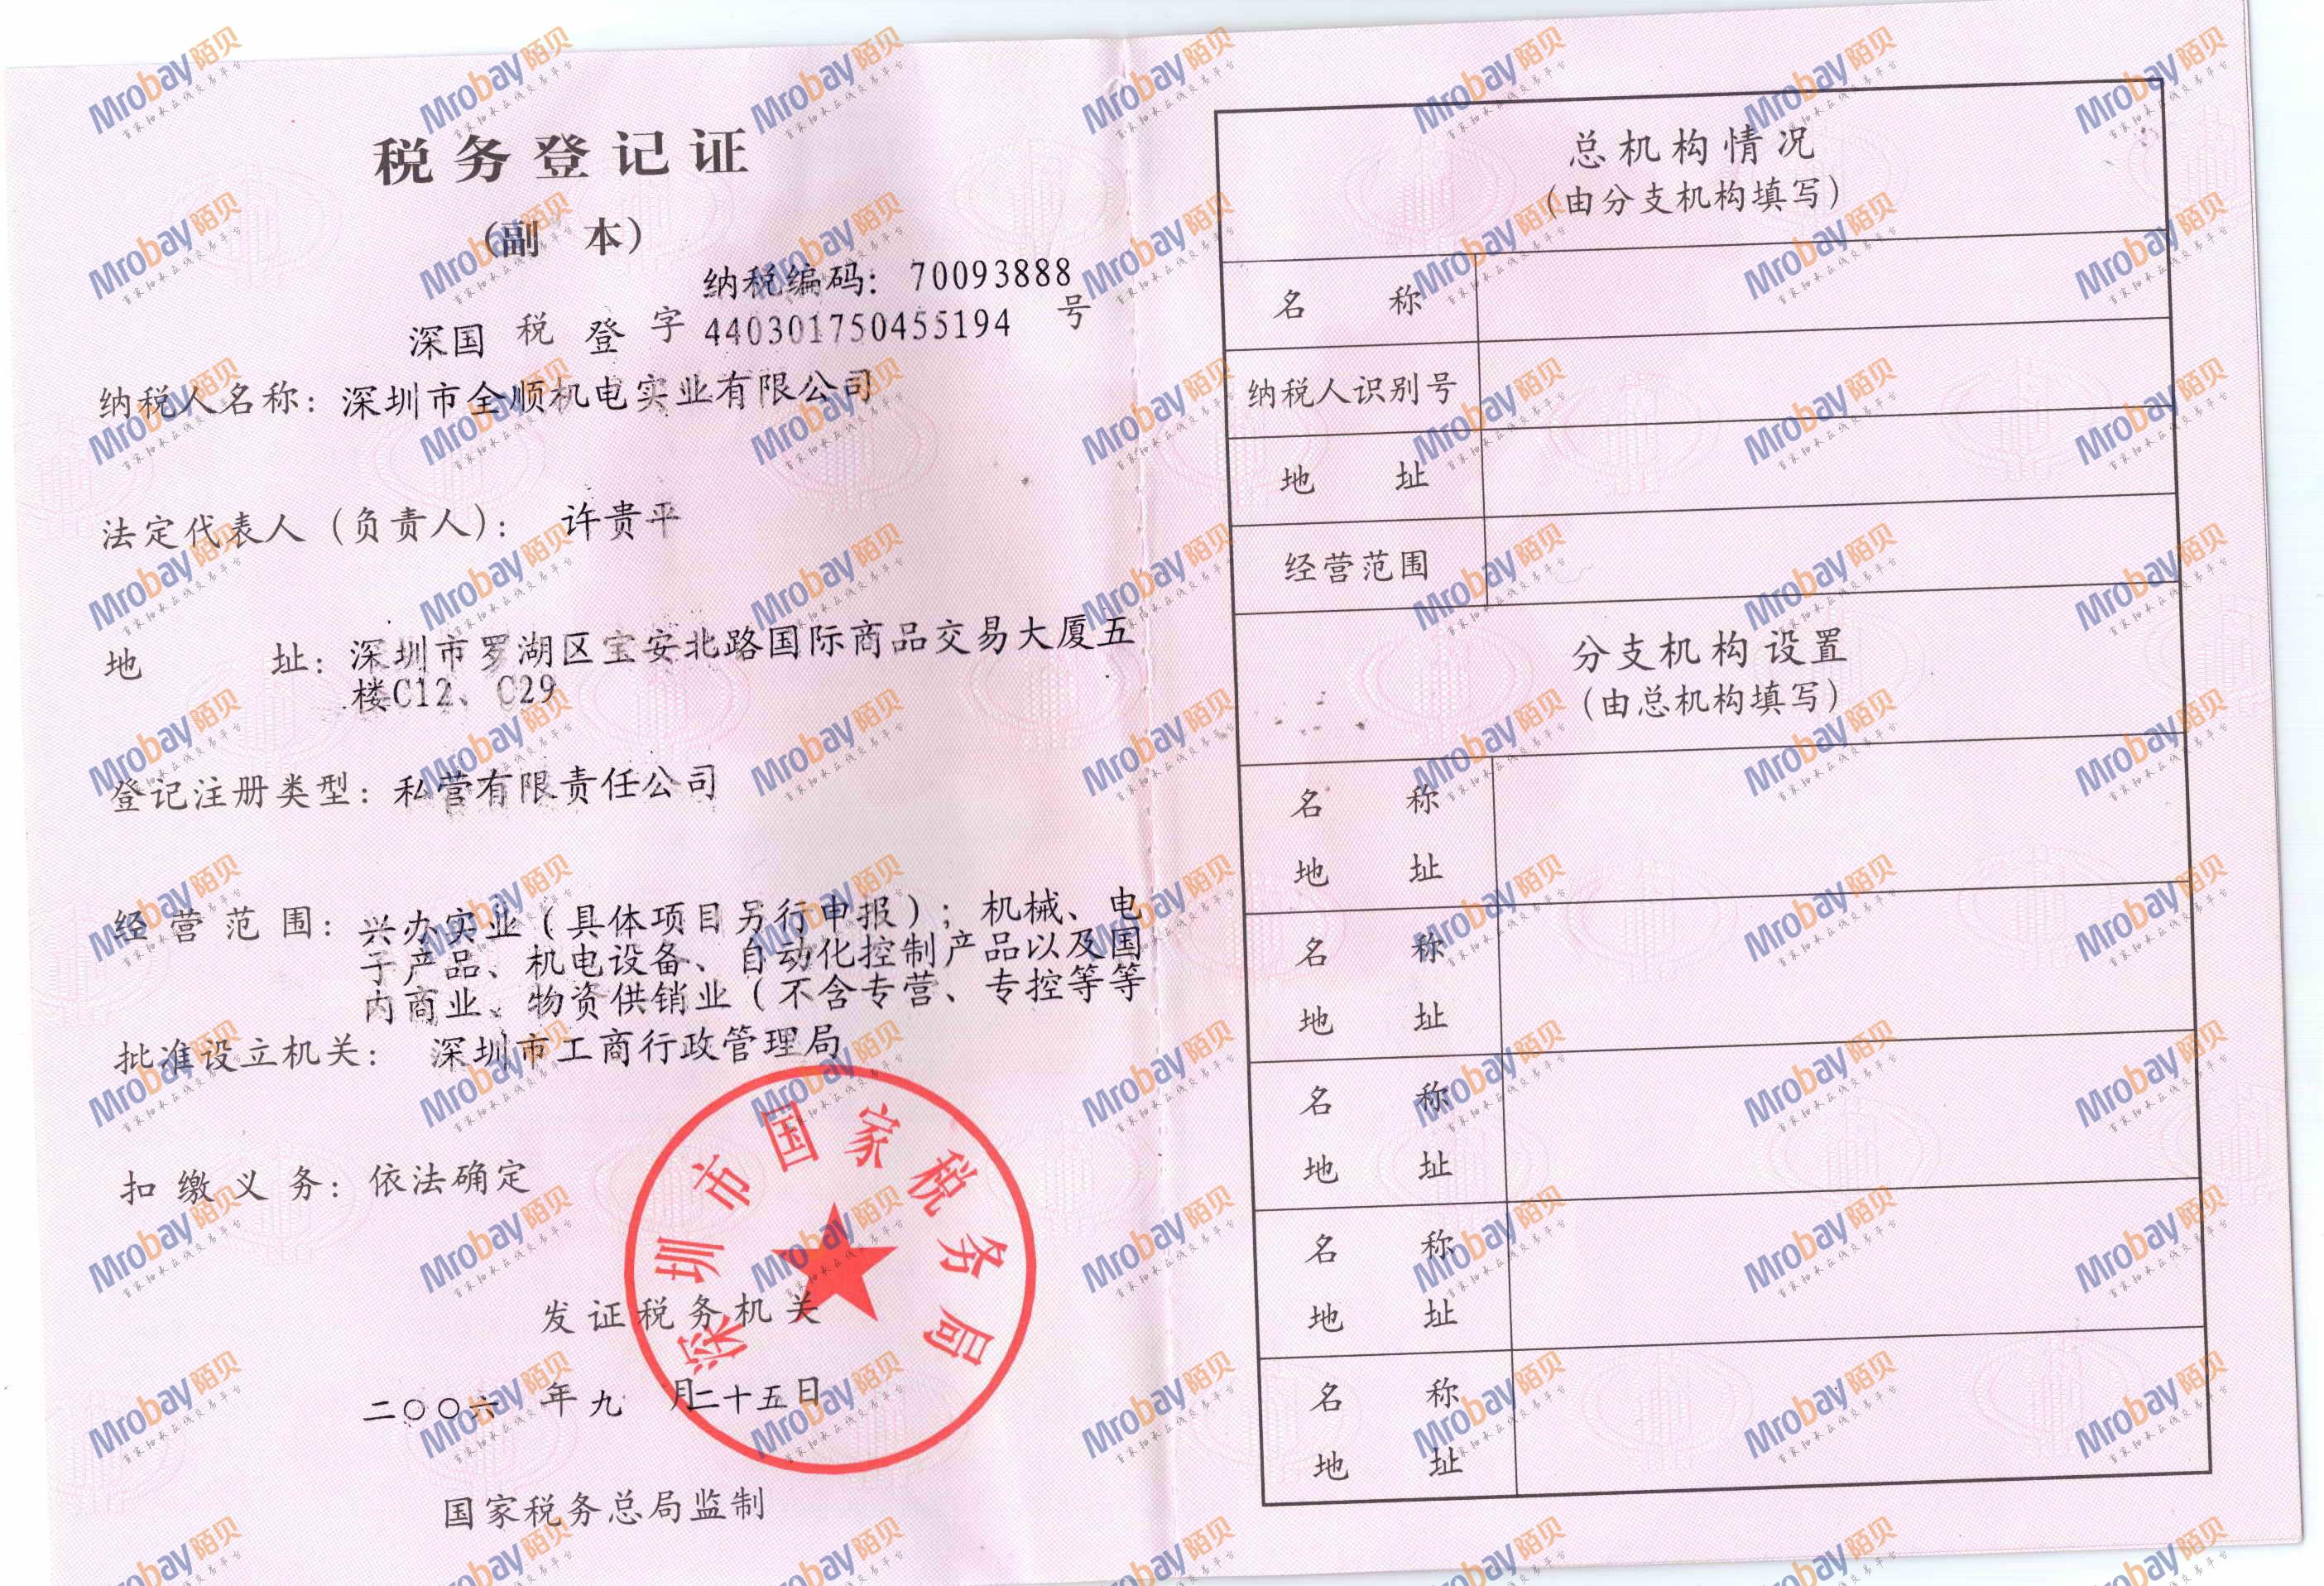 税务登记证
(副 本)
纳税编码: 70093888
深国 税 登 字 440301750455194 号
纳税人名称: 深圳市全顺机电实业有限公司
法定代表人 (负责人): 许贵平
地 址: 深圳市罗湖区宝安北路国际商品交易大厦五
楼C12、C29
登记注册类型: 私营有限责任公司
经营范围: 兴办实业(具体项目另行申报); 机械、电
子产品、机电设备、自动化控制产品以及国
内商业、物资供销业(不含专营、专控等等
批准设立机关: 深圳市工商行政管理局
扣缴义务: 依法确定
深圳市国家税务局
发证税务机关
二〇〇六 年 九 月二十五日
国家税务总局监制
总机构情况
(由分支机构填写)
名 称
纳税人识别号
地 址
经营范围
分支机构设置
(由总机构填写)
名 称
地 址
名 称
地 址
名 称
地 址
名 称
地 址
名 称
地 址
Mrobay陌贝